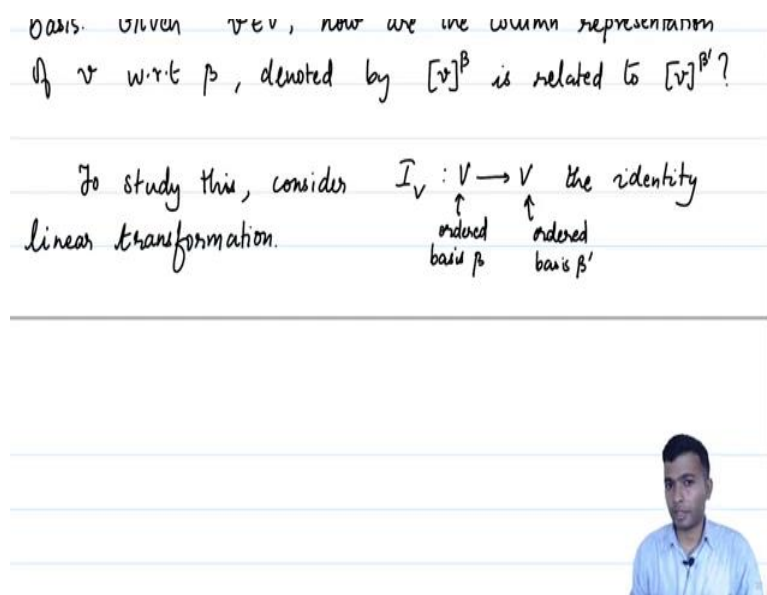 basis. Given v ∈ V, how are the column representation
of v w.r.t β, denoted by [v]^β is related to [v]^β' ?
To study this, consider I_V : V → V the identity
linear transformation.
↑ ordered basis β
↑ ordered basis β'